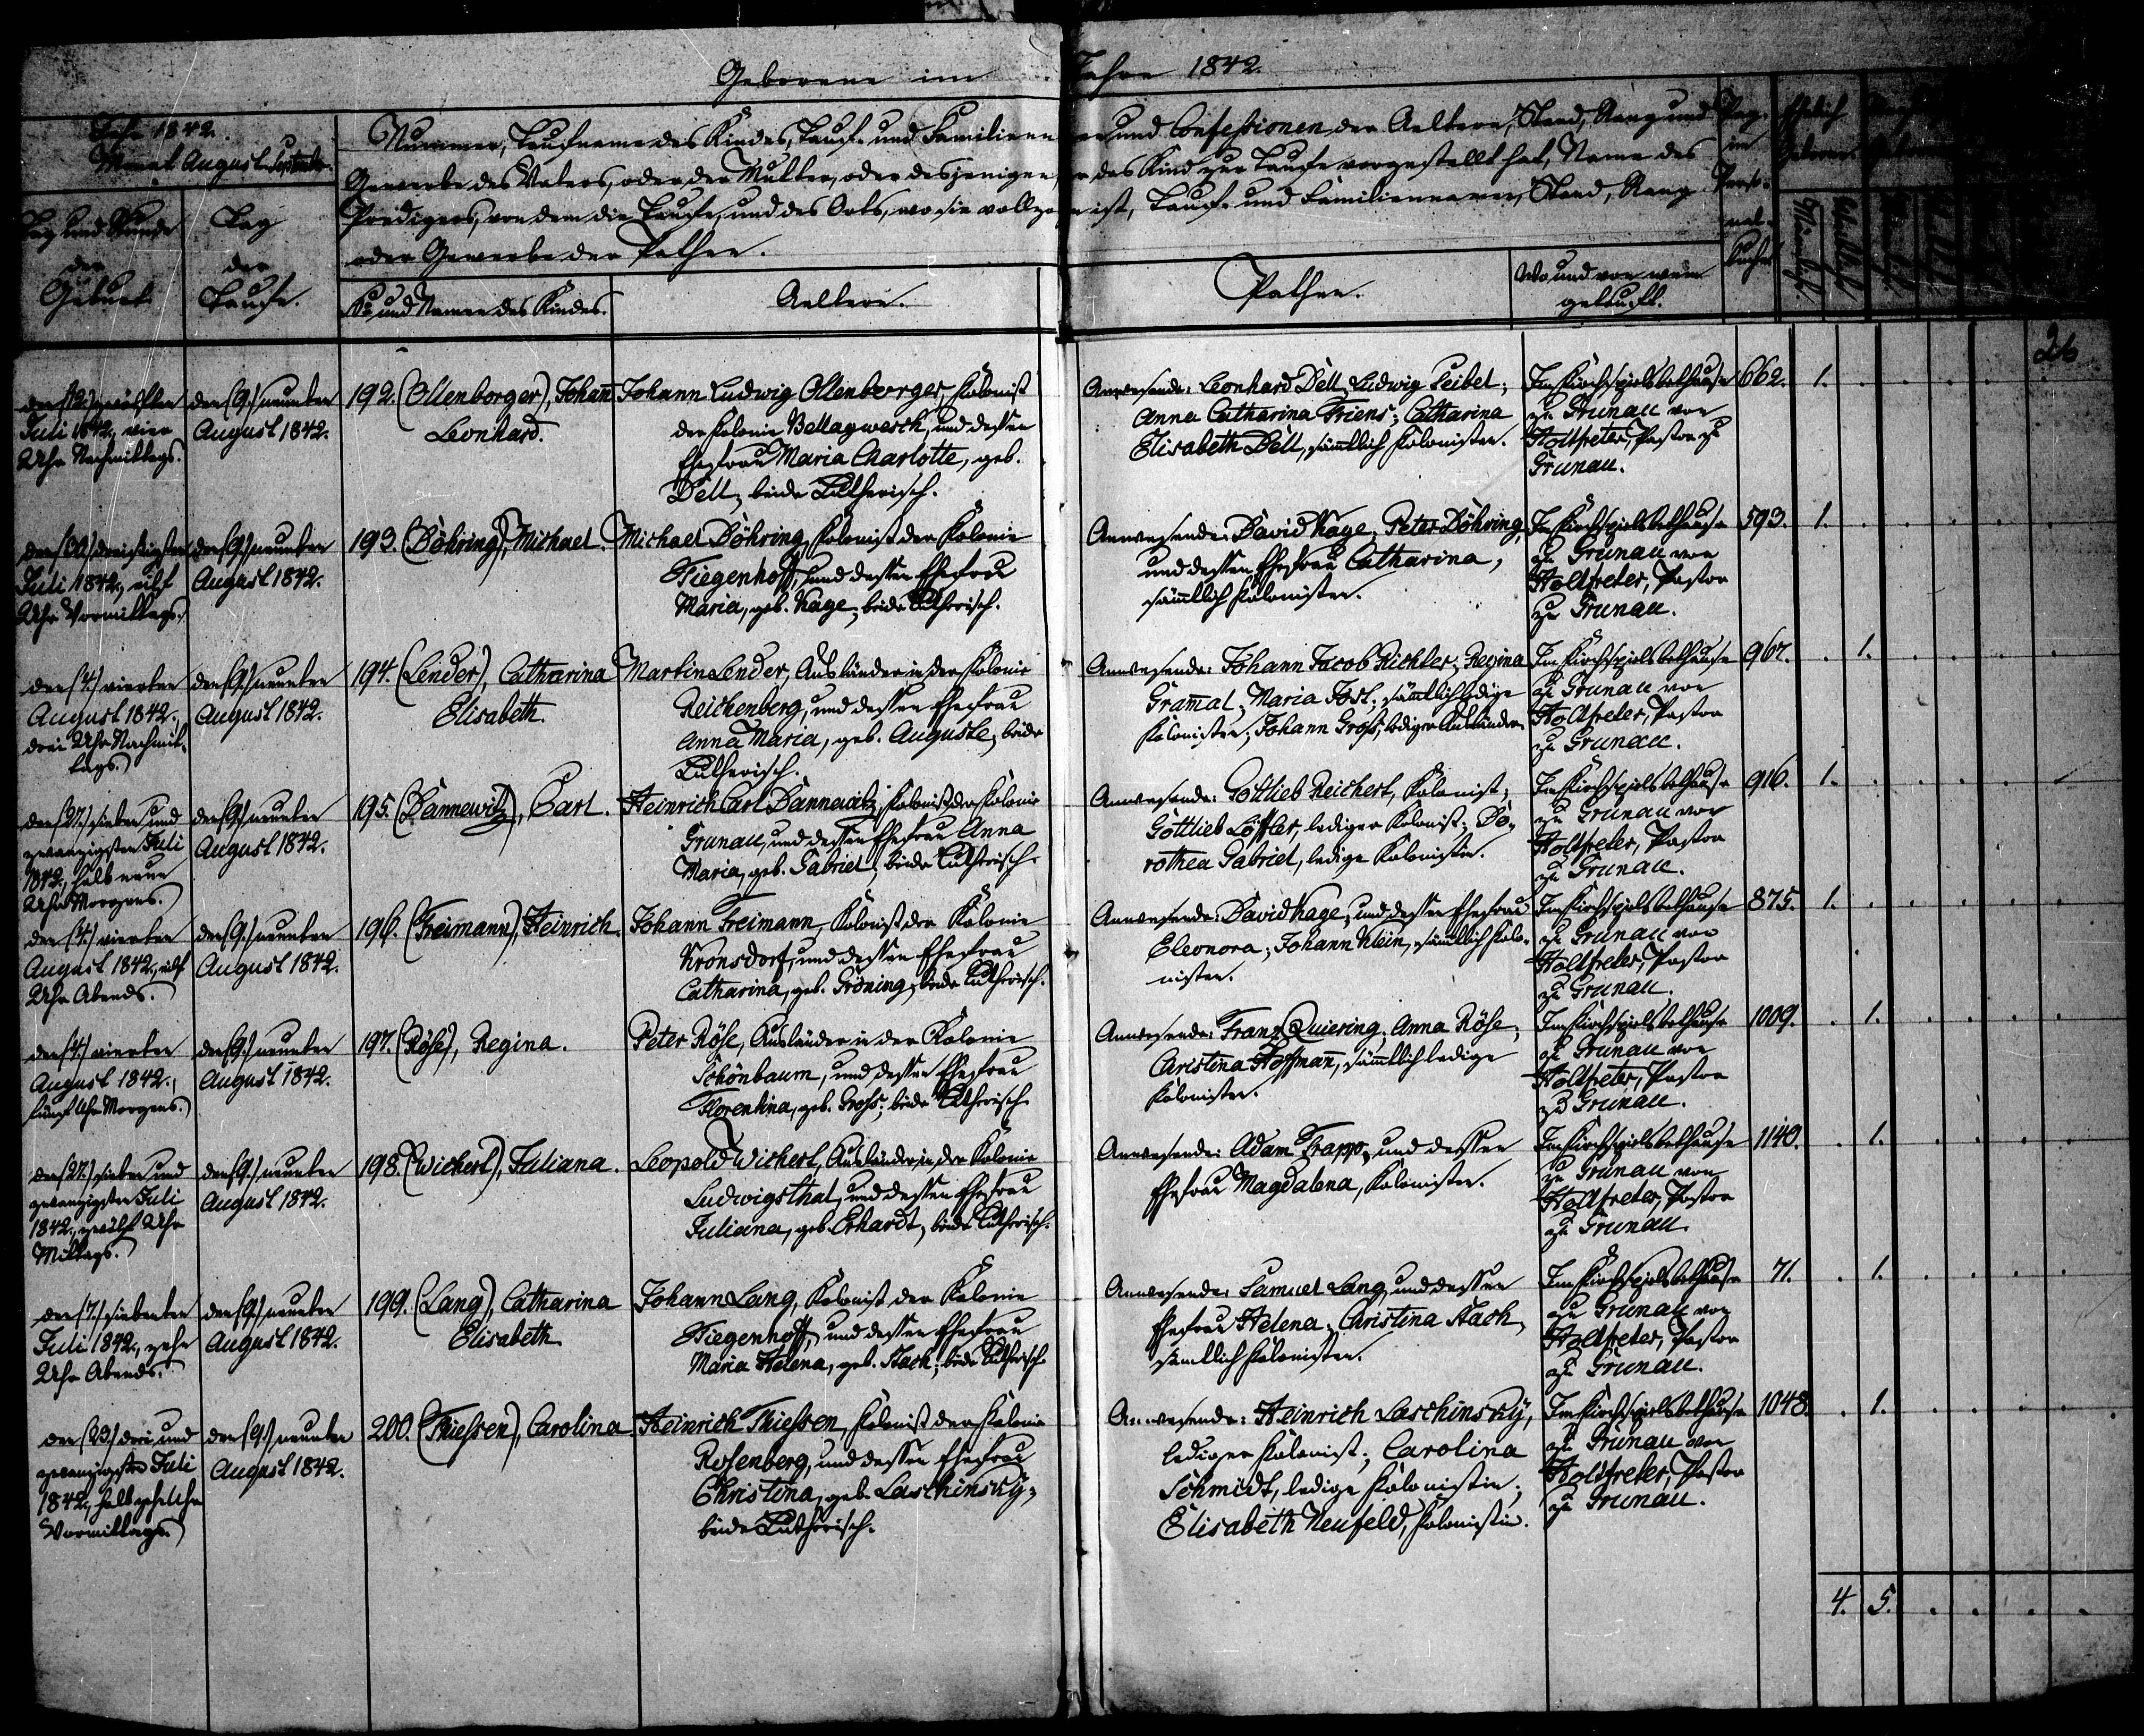 Geborene im Jahre 1842.
26
Jahr 1842.
Monat August
Tag und Stunde
der
Geburt.
Tag
der
Taufe.
Nummer, Taufname des Kindes, Tauf- und Familiennamen und Confessionen der Aeltern, Stand, Rang und
Gewerbe des Vaters, oder der Mutter, oder desjenigen, der das Kind zur Taufe vorgestellt hat, Name des
Predigers, von dem die Taufe, und des Orts, wo sie vollzogen ist, Tauf- und Familiennamen, Stand, Rang
oder Gewerbe der Pathen.
No und Namen des Kindes.
Aeltern.
Pathen.
Wo und von wem
getauft.
Pag.
im
Perso-
nal-
buche
Ehelich
Geboren
Männlich.
Weiblich
den (12.) zwölften
Juli 1842., vier
Uhr Nachmittags.
den (9.) neunten
August 1842.
192. (Ollenborger), Johann
Leonhard.
Johann Ludwig Ollenborger, Kolonist
der Kolonie Bellagwesch, und dessen
Ehefrau Maria Charlotte, geb.
Dell; beide Lutherisch.
Anwesende: Leonhard Dell; Ludwig Seibel;
Anna Catharina Friens; Catharina
Elisabeth Dell, sämmtlich Kolonisten.
Im Kirchspielsbethause
zu Grunau von
Holtfreter, Pastor zu
Grunau.
662.
1.
den (30.) dreißigsten
Juli 1842., elf
Uhr Vormittags.
den (9.) neunten
August 1842.
193. (Döhring), Michael.
Michael Döhring, Kolonist der Kolonie
Tiegenhoff, und dessen Ehefrau
Maria, geb. Kage; beide Lutherisch.
Anwesende: David Kage; Peter Döhring,
und dessen Ehefrau Catharina;
sämmtlich Kolonisten.
Im Kirchspielsbethause
zu Grunau von
Holtfreter, Pastor
zu Grunau.
593.
1.
den (4.) vierten
August 1842.,
drei Uhr Nachmit-
tags.
den (9.) neunten
August 1842.
194. (Lender), Catharina
Elisabeth.
Martin Lender, Ausländer in der Kolonie
Reichenberg, und dessen Ehefrau
Anna Maria, geb. Auguste; beide
Lutherisch.
Anwesende: Johann Jacob Richter; Regina
Gramat; Maria Jost; sämmtlich ledige
Kolonisten; Johann Gross, lediger Ausländer.
Im Kirchspielsbethause
zu Grunau von
Holtfreter, Pastor
zu Grunau.
967.
1.
den (27.) sieben und
zwanzigsten Juli
1842., halb neun
Uhr Morgens.
den (9.) neunten
August 1842.
195. (Dannewitz), Carl.
Heinrich Carl Dannewitz, Kolonist der Kolonie
Grunau, und dessen Ehefrau Anna
Maria, geb. Gabriel; beide Lutherisch.
Anwesende: Gottlieb Reichert, Kolonist;
Gottlieb Löffler, lediger Kolonist; Do-
rothea Gabriel, ledige Kolonistin.
Im Kirchspielsbethause
zu Grunau von
Holtfreter, Pastor
zu Grunau.
916.
1.
den (4.) vierten
August 1842., elf
Uhr Abends.
den (9.) neunten
August 1842.
196. (Freimann), Heinrich.
Johann Freimann, Kolonist der Kolonie
Kronsdorf, und dessen Ehefrau
Catharina, geb. Gröning; beide Lutherisch.
Anwesende: David Kage, und dessen Ehefrau
Eleonora; Johann Klein, sämmtlich Kolo-
nisten.
Im Kirchspielsbethause
zu Grunau von
Holtfreter, Pastor
zu Grunau.
875.
1.
den (4.) vierten
August 1842.,
fünf Uhr Morgens.
den (9.) neunten
August 1842.
197. (Röhse), Regina.
Peter Röhse, Ausländer in der Kolonie
Schönbaum, und dessen Ehefrau
Florentina, geb. Gross; beide Lutherisch.
Anwesende: Franz Quiering; Anna Röhse;
Christina Hoffmann, sämmtlich ledige
Kolonisten.
Im Kirchspielsbethause
zu Grunau von
Holtfreter, Pastor
zu Grunau.
1009.
1.
den (27.) sieben und
zwanzigsten Juli
1842., zwölf Uhr
Mittags.
den (9.) neunten
August 1842.
198. (Wichert), Juliana.
Leopold Wichert, Ausländer in der Kolonie
Ludwigsthal, und dessen Ehefrau
Juliana, geb. Erhardt, beide Lutherisch.
Anwesende: Adam Trapp, und dessen
Ehefrau Magdalena, Kolonisten.
Im Kirchspielsbethause
zu Grunau von
Holtfreter, Pastor
zu Grunau.
1140.
1.
den (7.) siebenten
Juli 1842., zehn
Uhr Abends.
den (9.) neunten
August 1842.
199. (Lang), Catharina
Elisabeth.
Johann Lang, Kolonist der Kolonie
Tiegenhoff, und dessen Ehefrau
Maria Helena, geb. Stach; beide Lutherisch.
Anwesende: Samuel Lang, und dessen
Ehefrau Helena; Christina Stach,
sämmtlich Kolonisten.
Im Kirchspielsbethause
zu Grunau von
Holtfreter, Pastor
zu Grunau.
71.
1.
den (23.) drei und
zwanzigsten Juli
1842., halb zehn Uhr
Vormittags.
den (9.) neunten
August 1842.
200. (Thiessen), Carolina.
Heinrich Thiessen, Kolonist der Kolonie
Rosenberg, und dessen Ehefrau
Christina, geb. Laschinsky;
beide Lutherisch.
Anwesende: Heinrich Laschinsky,
lediger Kolonist; Carolina
Schmidt, ledige Kolonistin;
Elisabeth Neufeld, Kolonistin.
Im Kirchspielsbethause
zu Grunau von
Holtfreter, Pastor
zu Grunau.
1048.
1.
4. 5.